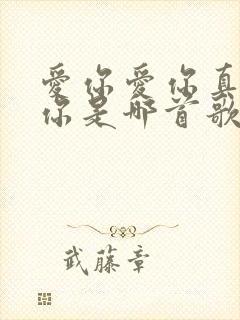 愛你愛你真
你是哪首歌
武藤章